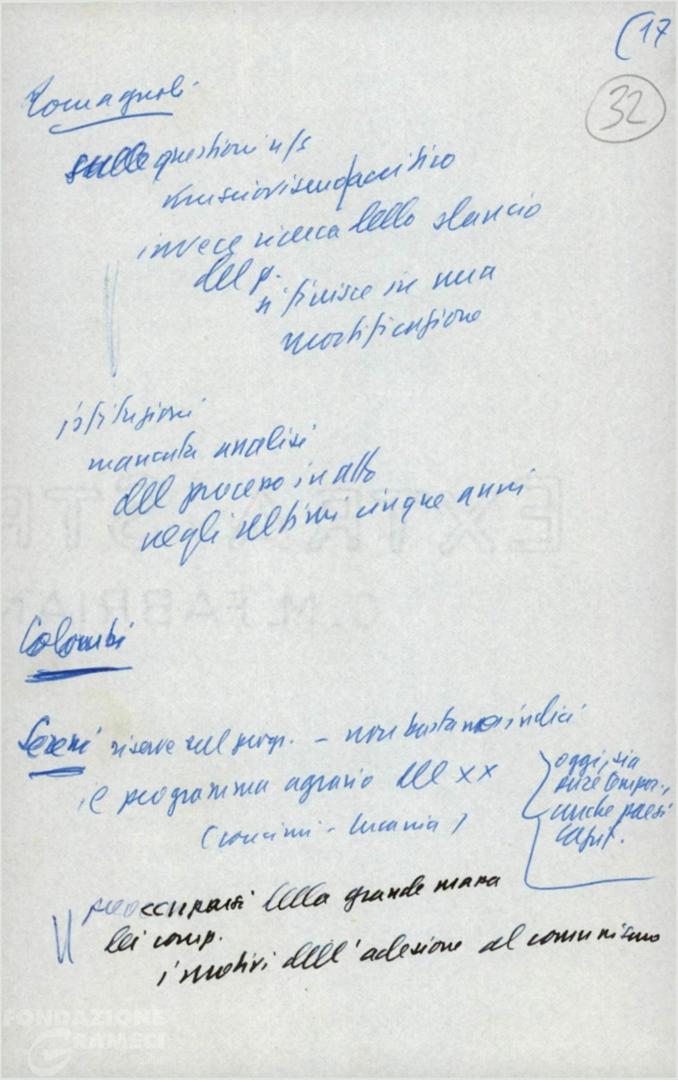 (17
32
Romagnoli
sulle questioni n/s
invece ricerca dello slancio
del p.
si finisce in una
mortificazione
istituzioni
mancata analisi
del processo in atto
negli ultimi cinque anni
Colombi
Sereni riserve sul progr. – non bastano indici
il programma agrario del XX
(concimi - Lucania)
oggi, sia
pure tempor.,
anche paesi
capit.
preoccuparsi della grande massa
dei comp.
i motivi dell'adesione al comunismo
EXTRA STR
C.M. FABRIAN
FONDAZIONE
GRAMSCI